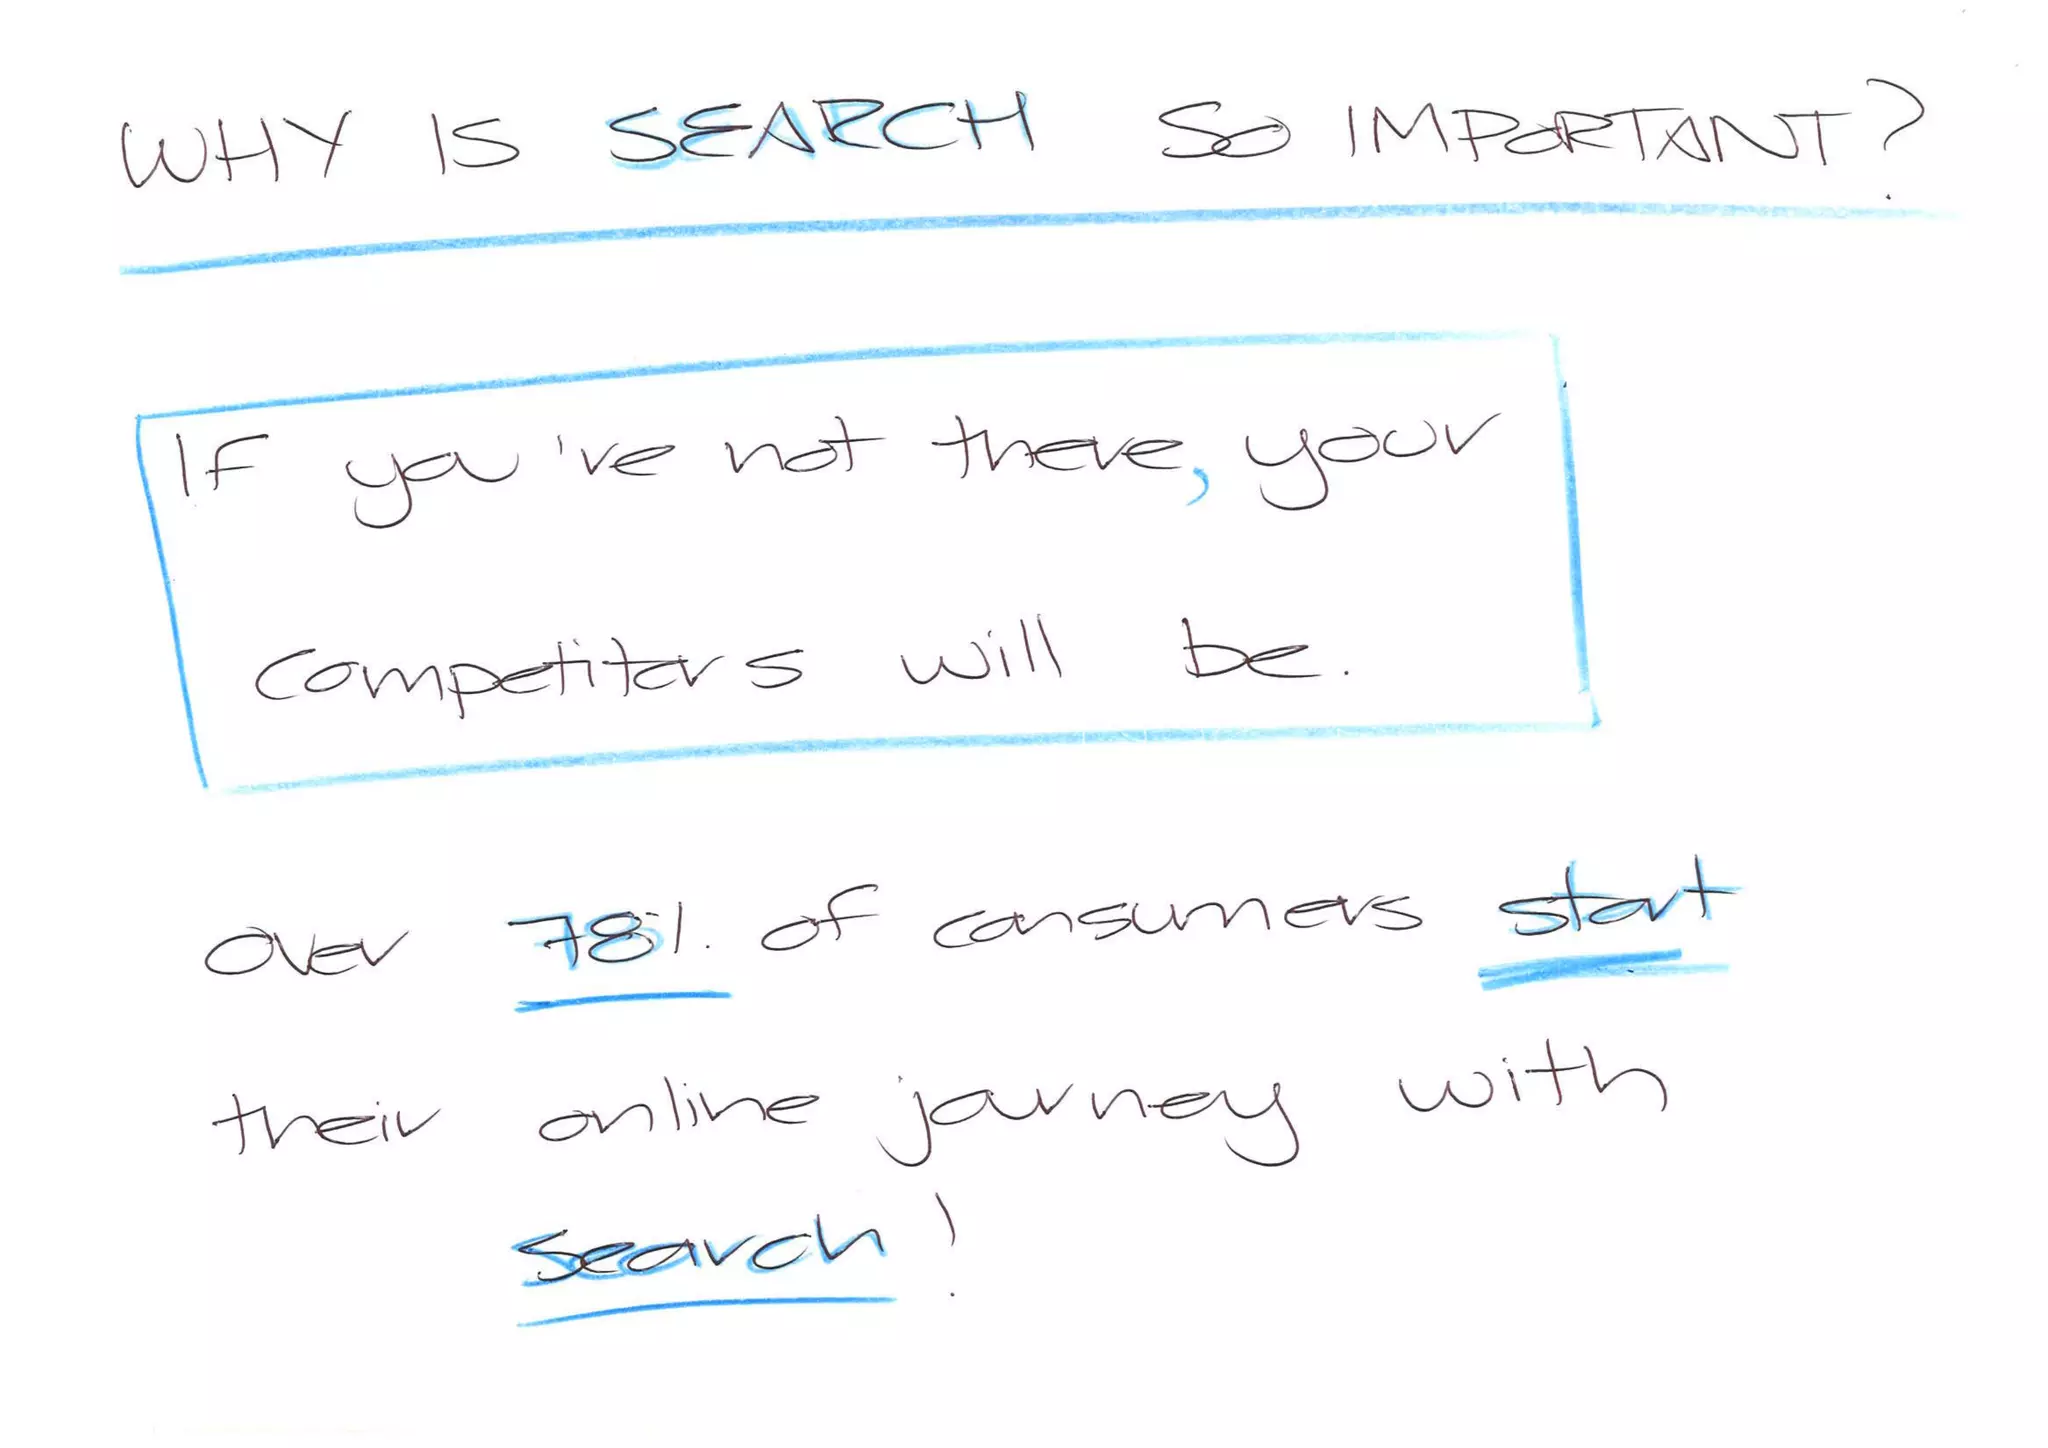 WHY IS SEARCH SO IMPORTANT?
If you've not there, your
competitors will be.
over 78% of consumers start
their online journey with
search!